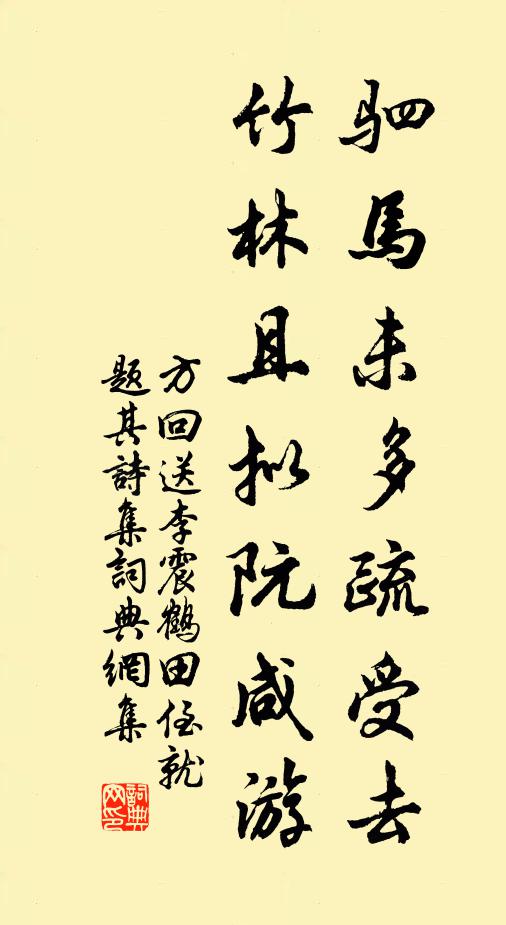 驷馬未多疏受去
竹林且拟阮咸游
方回送李震鹤田侄就
题其詩集詞典網集
詞典网印